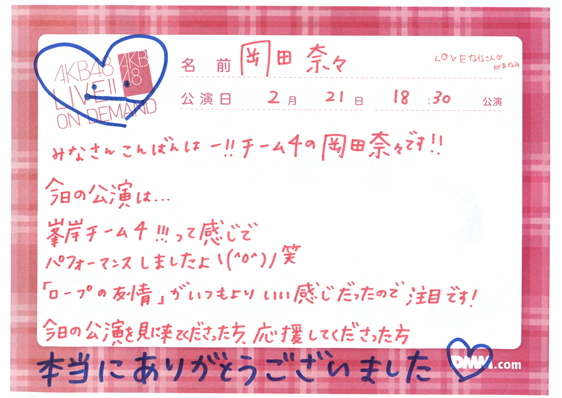 AKB48
LIVE!!
ON DEMAND
AKB
48
名 前 岡田 奈々
LOVEなぁさん♡
公演日 2月 21日 18:30 公演
みなさんこんばんはー!!チーム4の岡田奈々です!!
今日の公演は...
峯岸チーム4!!!って感じで
パフォーマンスしましたよ\(^o^)/笑
「ロープの友情」がいつもよりいい感じだったので注目です!
今日の公演を見に来てくださった方、応援してくださった方
本当にありがとうございました
DMM.com